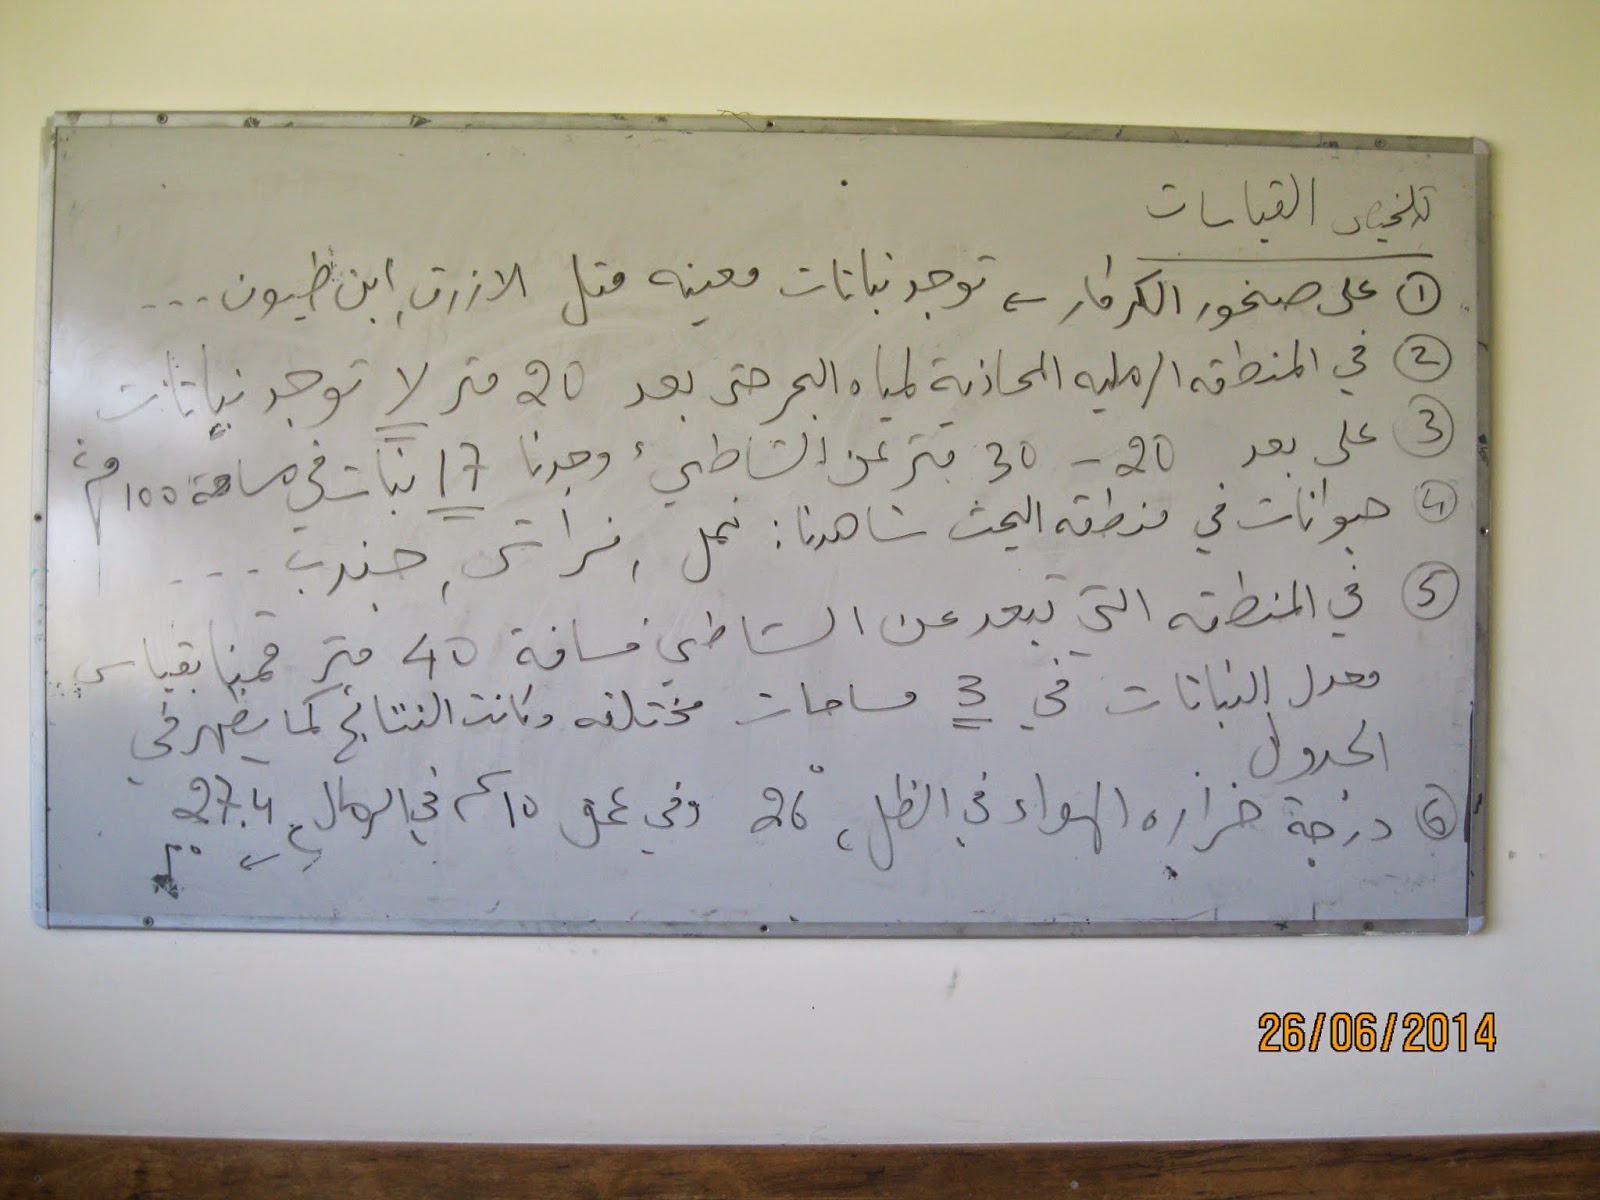 تلخيص القياسات
① على صخور الكركار ← توجد نباتات معينه مثل الازرق، ابن طيون ...
② في المنطقه الرمليه المحاذية لمياه البحر حتى بعد 20 متر لا توجد نباتات
③ على بعد 20 - 30 متر عن الشاطيء وجدنا 17 نبات في مساحة 100 م²
④ حيوانات في منطقه البحث شاهدنا: نمل، فراش، جندب ...
⑤ في المنطقه التي تبعد عن الشاطئ مسافة 40 متر قمنا بقياس
معدل النباتات في 3 مساحات مختلفه وكانت النتائج كما يظهر في
الجدول
⑥ درجة حراره الهواء في الظل، 26° وفي عمق 10 سم في الرمال 27.4
26/06/2014